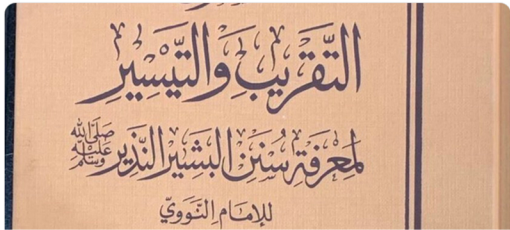 التَّقْرِيبُ وَالتَّيْسِيرِ
لِمَعْرِفَةِ سُنَنِ الْبَشِيرِ النَّذِيرِ صَلَّى اللَّهُ عَلَيْهِ وَسَلَّمَ
لِلْإِمَامِ النَّوَوِيّ